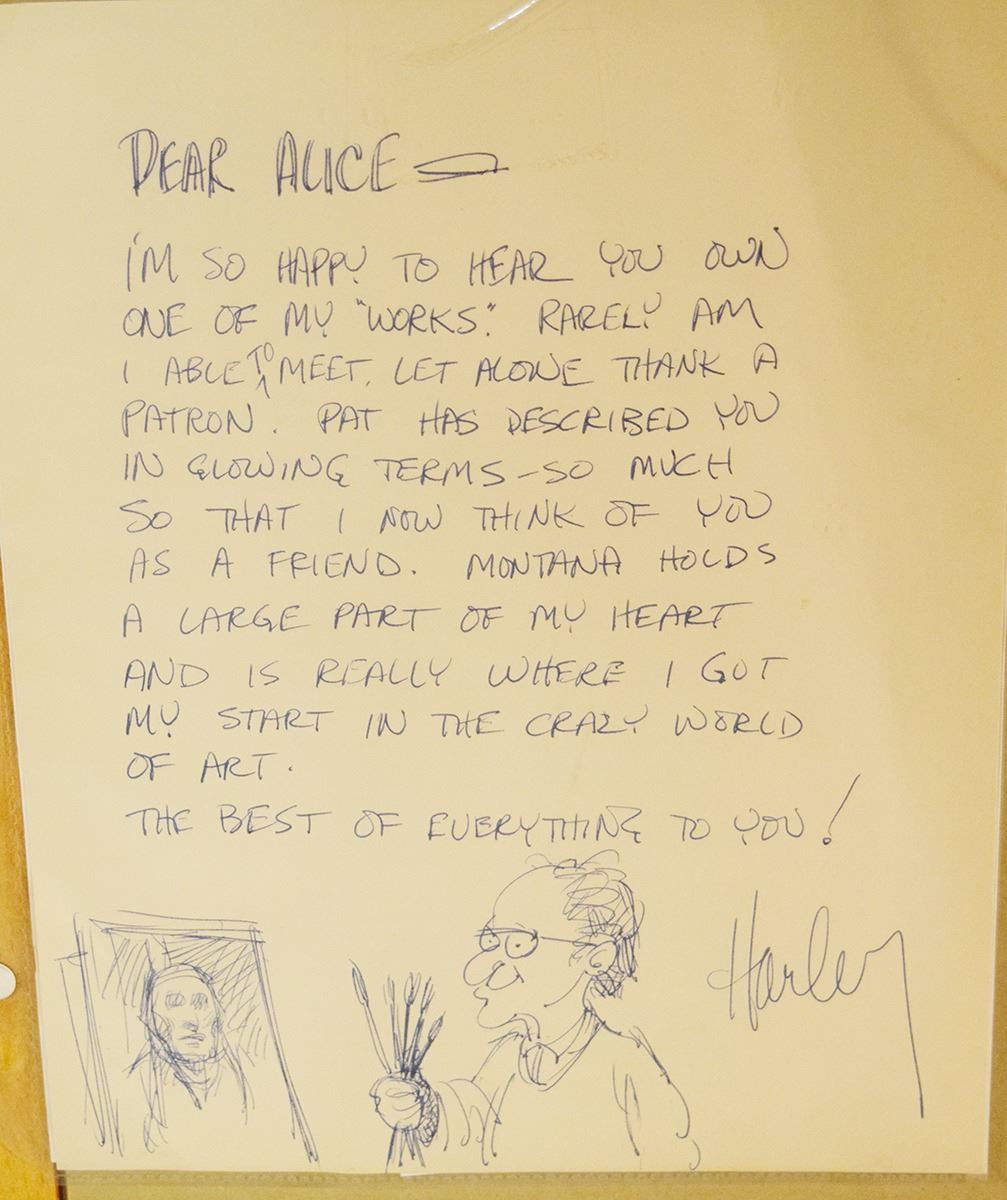 DEAR ALICE —
I'M SO HAPPY TO HEAR YOU OWN
ONE OF MY "WORKS." RARELY AM
I ABLE TO MEET, LET ALONE THANK A
PATRON. PAT HAS DESCRIBED YOU
IN GLOWING TERMS - SO MUCH
SO THAT I NOW THINK OF YOU
AS A FRIEND. MONTANA HOLDS
A LARGE PART OF MY HEART
AND IS REALLY WHERE I GOT
MY START IN THE CRAZY WORLD
OF ART.
THE BEST OF EVERYTHING TO YOU!
Harley